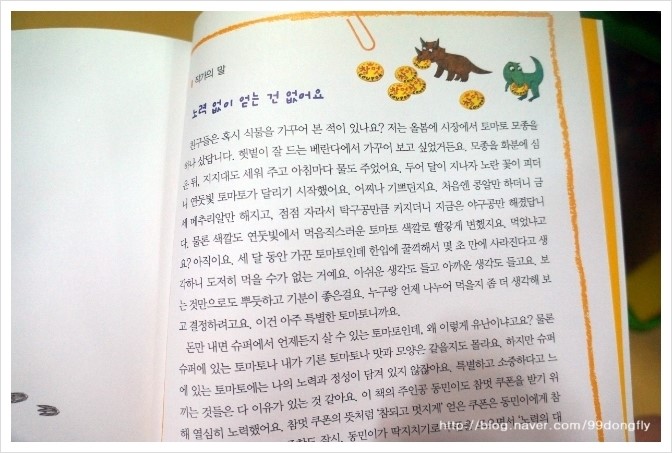 작가의 말
노력 없이 얻는 건 없어요
친구들은 혹시 식물을 가꾸어 본 적이 있나요? 저는 올봄에 시장에서 토마토 모종을
하나 샀답니다. 햇볕이 잘 드는 베란다에서 가꾸어 보고 싶었거든요. 모종을 화분에 심
은 뒤, 지지대도 세워 주고 아침마다 물도 주었어요. 두어 달이 지나자 노란 꽃이 피더
니 연둣빛 토마토가 달리기 시작했어요. 어찌나 기쁘던지요. 처음엔 콩알만 하더니 금
세 메추리알만 해지고, 점점 자라서 탁구공만큼 커지더니 지금은 야구공만 해졌답니
다. 물론 색깔도 연둣빛에서 먹음직스러운 토마토 색깔로 빨갛게 변했지요. 먹었냐고
요? 아직이요. 세 달 동안 가꾼 토마토인데 한입에 꿀꺽해서 몇 초 만에 사라진다고 생
각하니 도저히 먹을 수가 없는 거예요. 아쉬운 생각도 들고 아까운 생각도 들고요. 보
는 것만으로도 뿌듯하고 기분이 좋은걸요. 누구랑 언제 나누어 먹을지 좀 더 생각해 보
고 결정하려고요. 이건 아주 특별한 토마토니까요.
돈만 내면 슈퍼에서 언제든지 살 수 있는 토마토인데, 왜 이렇게 유난이냐고요? 물론
슈퍼에 있는 토마토나 내가 기른 토마토나 맛과 모양은 같을지도 몰라요. 하지만 슈퍼
에 있는 토마토에는 나의 노력과 정성이 담겨 있지 않잖아요. 특별하고 소중하다고 느
끼는 것들은 다 이유가 있는 것 같아요. 이 책의 주인공 동민이도 참멋 쿠폰을 받기 위
해 열심히 노력했어요. 참멋 쿠폰의 뜻처럼 '참되고 멋지게' 얻은 쿠폰은 동민이에게 참
잠시, 동민이가 딱지치기로 '노력의 대
http://blog.naver.com/99dongfly